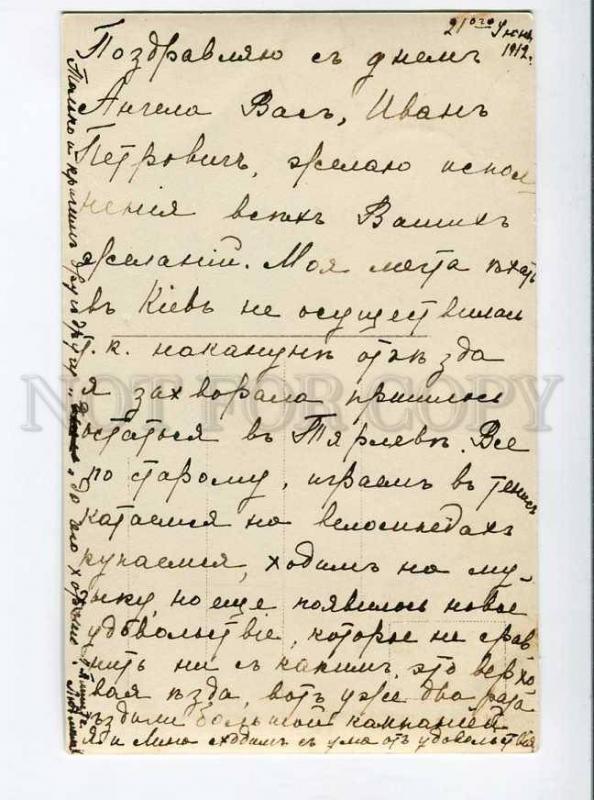 21ого Июня
1912 г.
Поздравляю съ днемъ
Ангела Васъ, Иванъ
Петровичъ, желаю испол-
ненія всѣхъ Вашихъ
желаній. Моя мечта ѣхать
въ Кіевъ не осуществилась
т. к. наканунѣ отъѣзда
я захворала пришлось
остаться въ Тярлевѣ. Все
по старому, играемъ въ теннисъ
катаемся на велосипедахъ
купаемся, ходимъ на му-
зыку, но еще появилось новое
удовольствіе, которое не срав-
нить ни съ какимъ, это верхо-
вая ѣзда, вотъ уже два раза
ѣздили большой компаніей
Я и Лина сходимъ съ ума отъ удовольствія
Только и кричимъ другъ другу до его
NOT FOR COPY